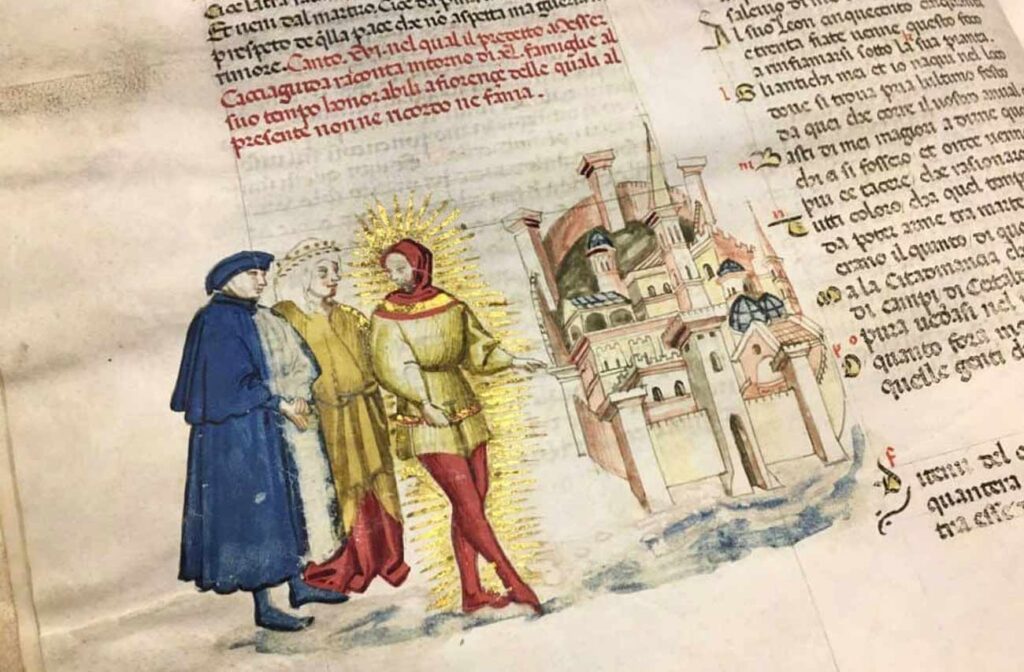 Et ueni dal martiro. Cice da
prespeto de q̃lla pace che nō aspetta ma guerra
rimore. Canto .XVI. nel qual il predetto a Messer
Cacciaguida raconta intorno di .XL. famiglie al
suo tempo honorabili a fiorença delle quali al
presente non ne ricordo ne fama.
Al suo Leon cinquecento cinquanta
e trenta fiate uenne questo foco
a rinfiamarsi sotto la sua pianta.
Gli antichi mei et io naqui nel loco
doue si troua pria lultimo sesto
da quei che corre il uostro anual
Basti di mei magiori a dirne que
chi ei si fossero, et onde uenn
piu ee tacere, che rasionar
Tutti coloro, cha quel temp
da potter arme tra marte
erano il quinto di que
Ma la Citadinança ch
di campi di Certald
pura uedasi nel
O quanto fora me
quelle genti ch
quantera
tra esse